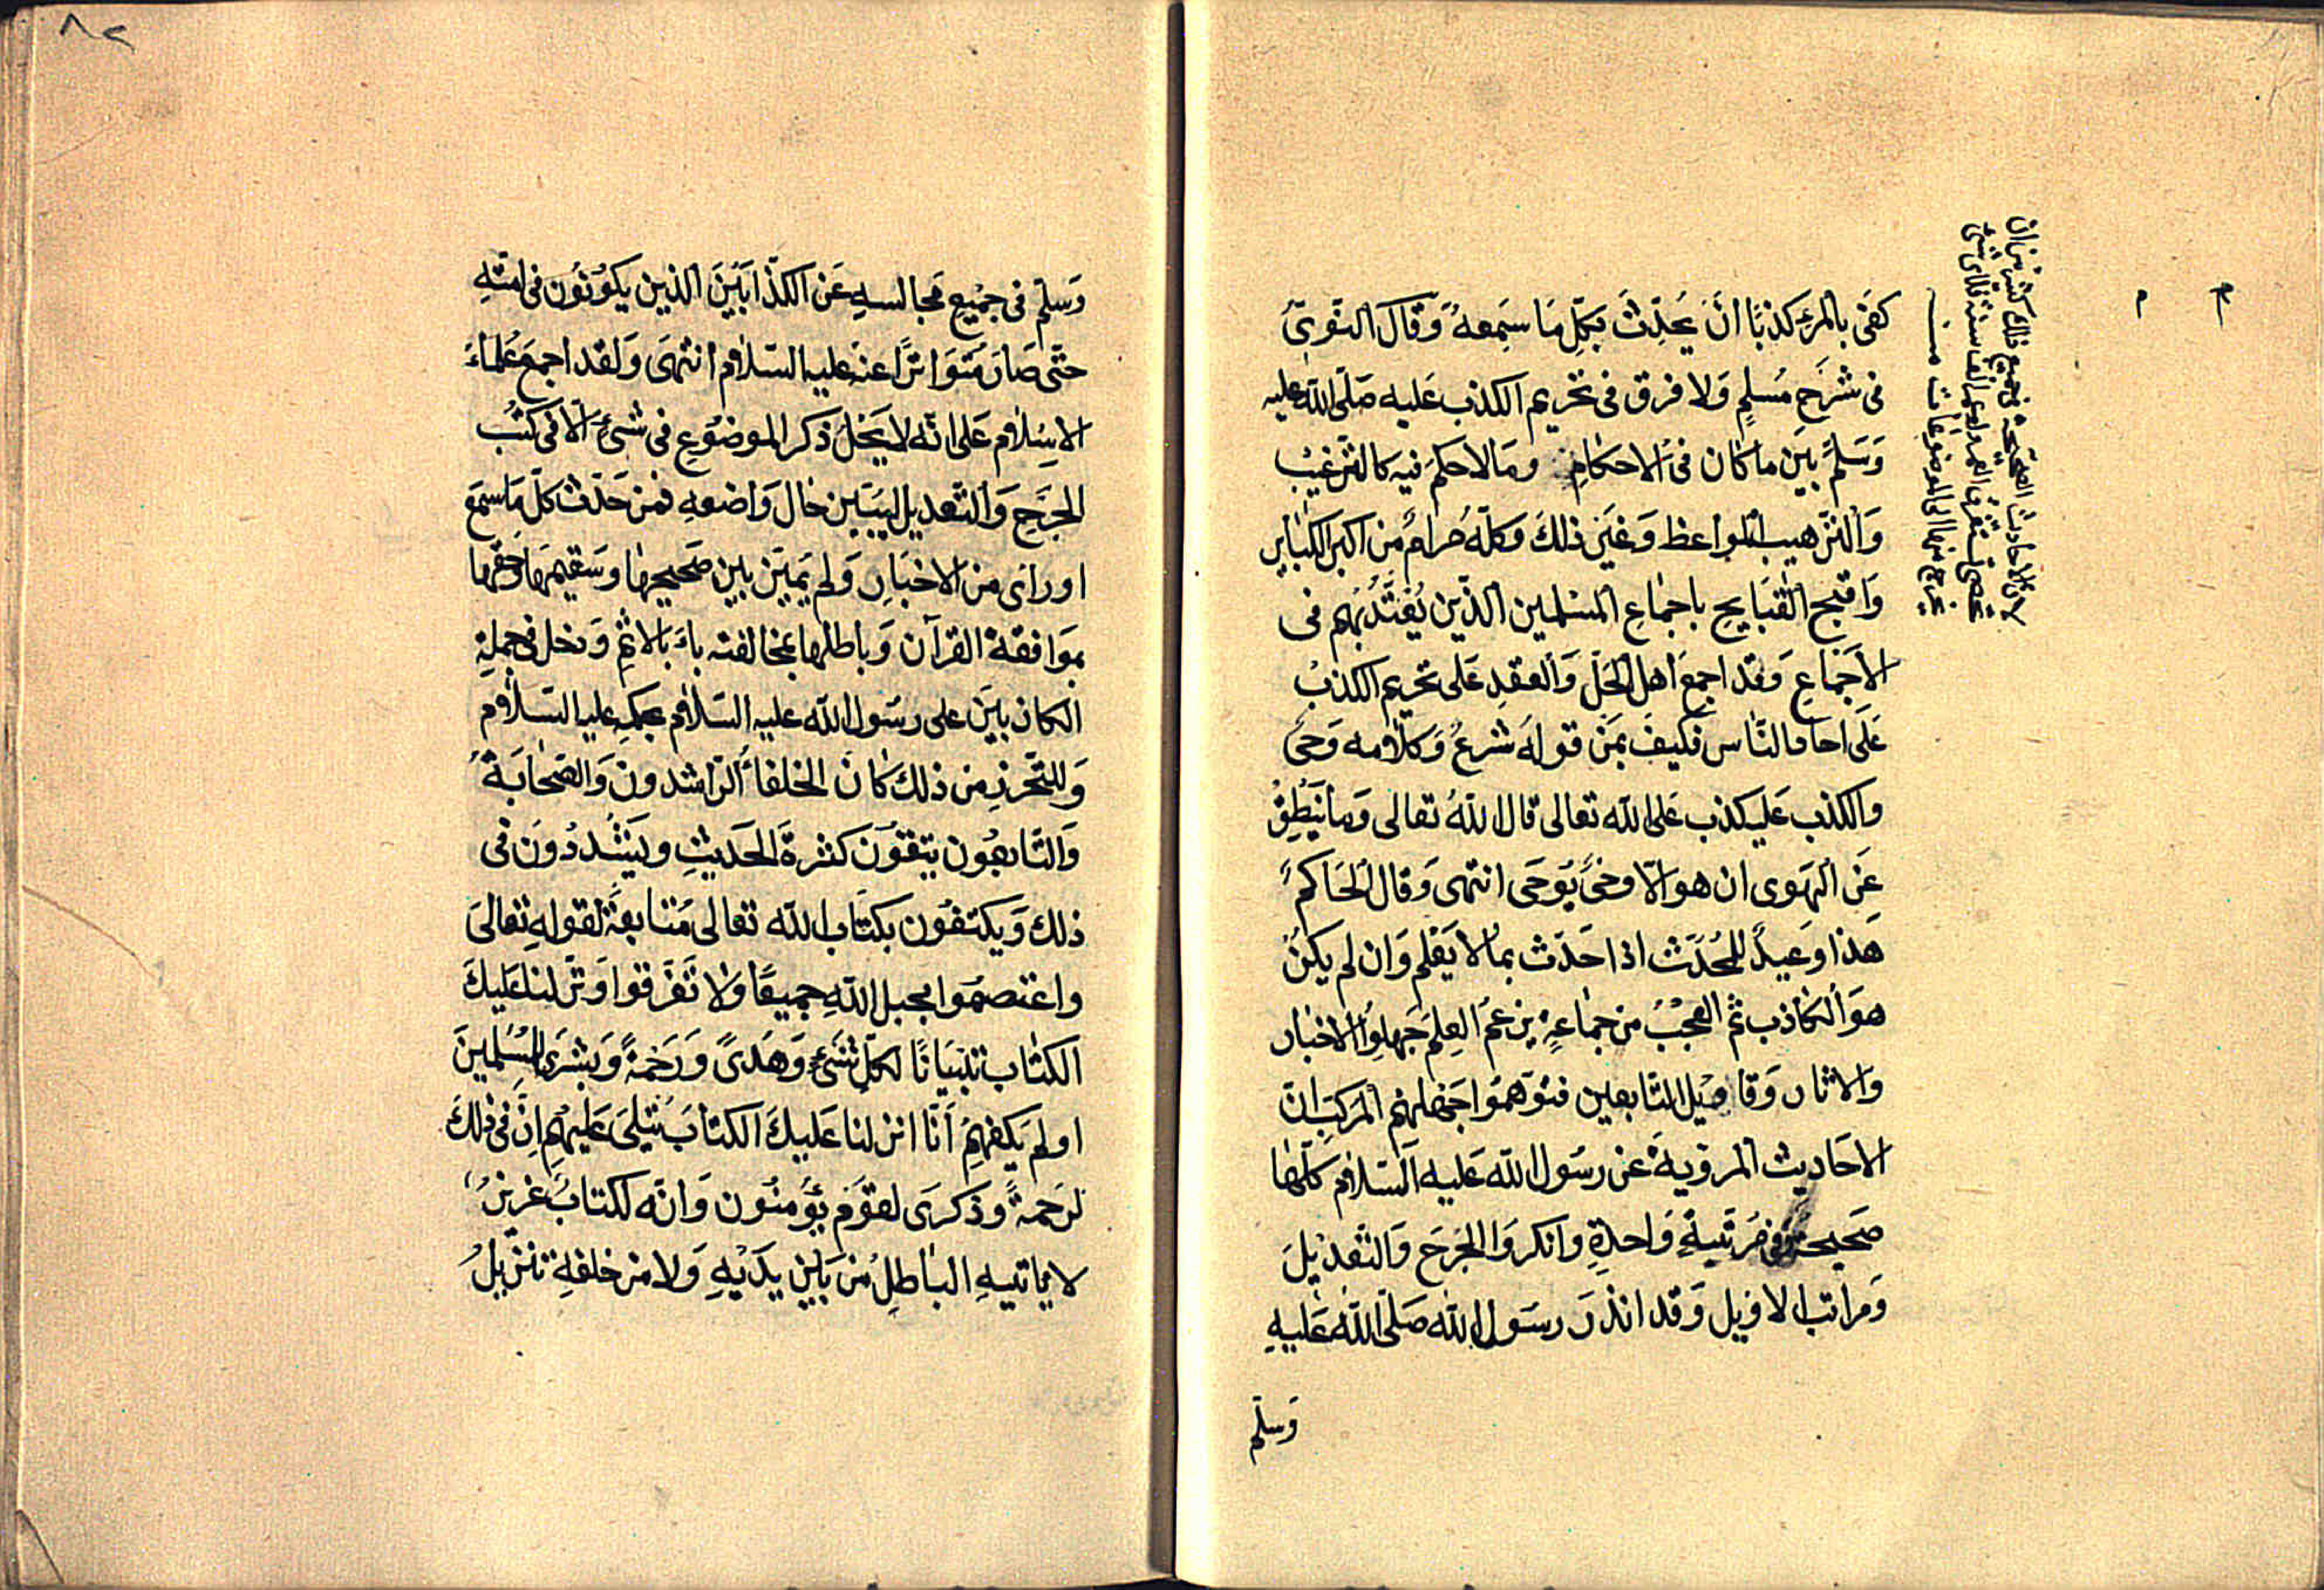 كفى بالمرء كذبًا انَ يُحَدّثَ بكلّ مَا سَمِعهُ وَقَالَ النّوَوىّ
فى شَرحِ مُسلمٍ وَلا فرق فى تحريم الكذب عَليه صَلّى الله عليه
وَسَلّمَ بَين ما كان فى الاحكامِ ومَا لا حكمَ فيه كالتّرغيْب
وَالتّرهيب المواعظ وَغَير ذلكَ وَكلّهُ حرامٌ من اكبر الكبَاير
وَاقبح القَبايحِ باجماعِ المسْلمين الذّين يُعْتَدُّ بهم فى
الاجَماعِ وَقد اجمعَ اهل الحَلّ وَالعقدِ عَلى تحريم الكذبْ
عَلَى احاد النّاس فكيفَ بمَنْ قولهُ شرعٌ وَكلامه وَحىٌ
والكذب عَليه كذب عَلى الله تعالى قال اللهُ تعالى وَما يَنْطِقُ
عَن الهَوى ان هو الّا وحىٌ يُوحَى انتهى وَقال الحَاكمُ
هَذا وَعيدٌ للمُحدّث اذا حَدّث بما لا يَعْلم وَان لم يكنْ
هوَ الكاذب ثم العجْبُ من جماعةٍ يزعم العِلم جَهلوُا الاخبار
والاثار وَقاويْل التّابعين فتوَهمُوا بجهْلهم المرَكب انّ
الاحَاديث المرويةَ عن رسَول الله عَليه السّلام كلّها
صَحيحة فى مَرتَبةٍ وَاحدةٍ وانكروَا الجَرَحَ وَالتّعديْلَ
وَمراتب الاويل وَقد انذرَ رسَول الله صَلّى اللهُ عَليهِ
وَسلّم
لان الاحاديث الصّحيحة فى جميع ذلك كثيرة من ان
تحصى
تخرج منها الى الموضوعات منه
م
٨٢
وَسلّم فى جميْع مَجالسهِ عَن الكذّابَينَ الذين يكوُنوُن فى امّتهِ
حتّى صَارَ مُتَوَاترًا عنه عليه السّلام انتهىَ وَلقد اجمعَ عُلماءُ
الاسِلام عَلى انّه لا يَحلُّ ذكر الموضوُعِ فى شىءٍ الّا فى كتُبِ
الجَرَحِ وَالتّعديل ليتبَين حال وَاضعهِ فمن حَدّث كلّ مَا سمعَ
او راى من الاخبَارِ وَلم يَميّن بين صَحيحها وسَقيمهَا وحقها
بموَافقة القرآن وَباطلها بمخالفته باءَ بالاثْمِ وَدخل فى جملةِ
الكاذبين على رسَول الله عليه السّلام بحكمِ عليه السّلام
وَللتّحرزِ من ذلك كانَ الخلفاءُ الرّاشدون وَالصّحابَةُ
وَالتّابعُون يتقوُنَ كثرةَ الحَديثِ ويَتشْددُونَ فى
ذلك وَيكتفوُن بكتاب الله تعالى مُتابعةً لقولهِ تعالىَ
واعتصمُوا بحبل اللهِ جميعًا وَلا تَفرَقوا وَنزّلنا عَليكَ
الكتَاب تبْيَانًا لكلّ شىءٍ وَهدىً وَرَحْمةً وَبشرَى للمسْلمينَ
او لم يَكفهِمُ اَنّا انزلنا عَليكَ الكتابَ يُتلىَ عَليهْم اِنّ فى ذلكَ
لرَحمةً وذكرَى لقوَم يؤمنُون وَانّه لكتابٌ عَزيزٌ
لا ياتيهِ البَاطلُ من بَين يدَيْهِ وَلا من خلفهِ تنزيلٌ